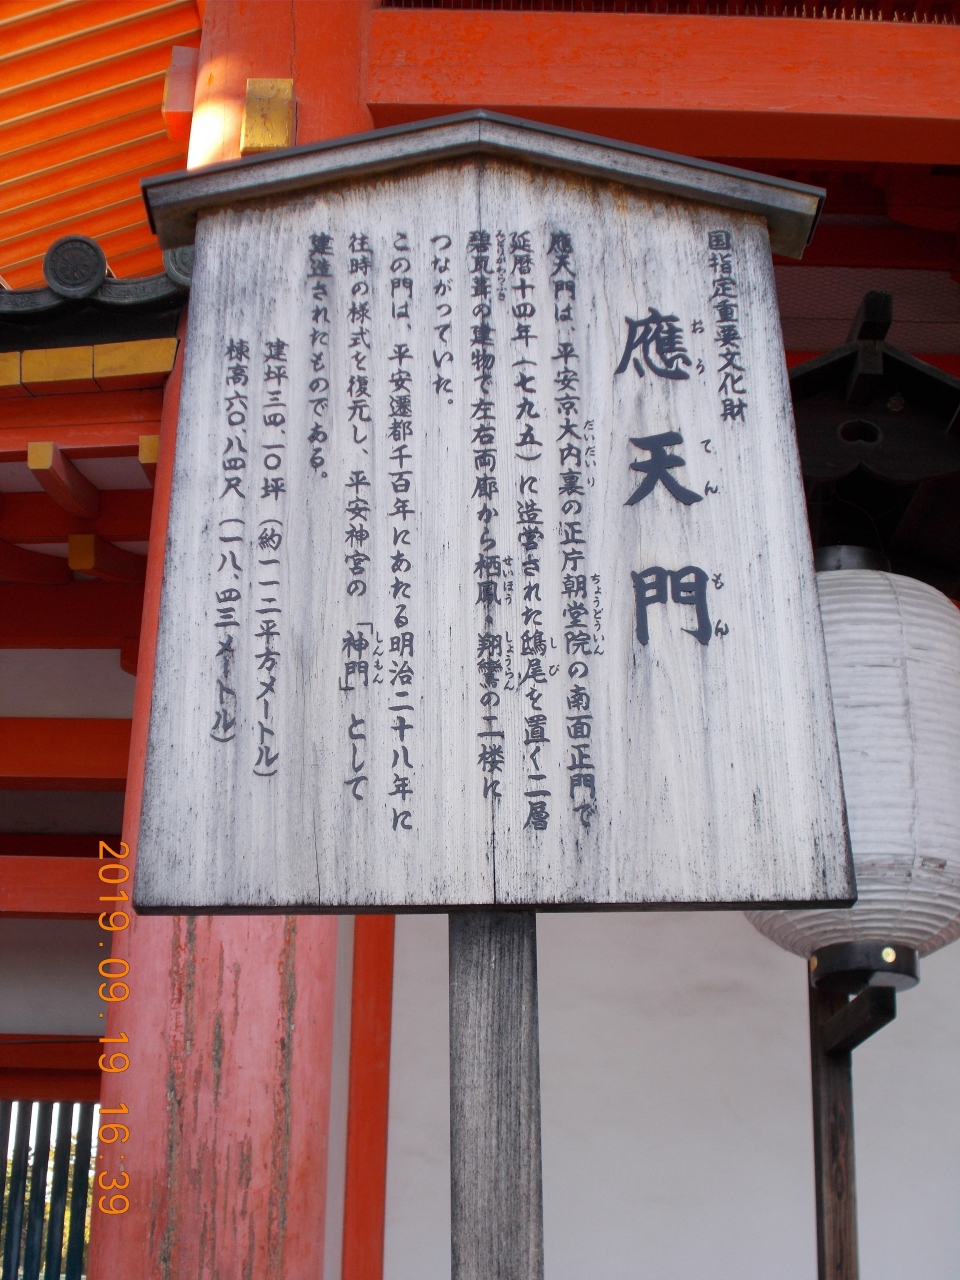 国指定重要文化財
應天門
おうてんもん
應天門は、平安京大内裏の正庁朝堂院の南面正門で
だいだいり
ちょうどういん
延暦十四年(七九五)に造営された鴟尾を置く二層
しび
碧瓦葺の建物で左右両廊から栖鳳・翔鸞の二楼に
みどりがわらぶき
せいほう
しょうらん
つながっていた。
この門は、平安遷都千百年にあたる明治二十八年に
往時の様式を復元し、平安神宮の「神門」として
しんもん
建造されたものである。
建坪三四、一〇坪(約一一二平方メートル)
棟高六〇、八四尺(一八、四三メートル)
2019.09.19 16:39